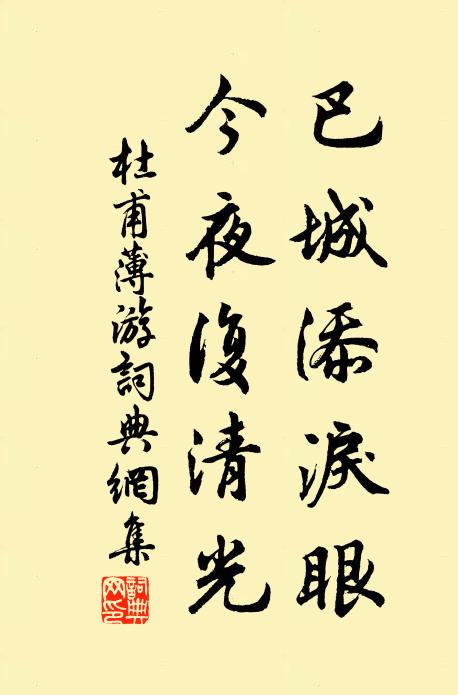 巴城添淚眼
今夜復清光
杜甫薄游詞典網集
詞典网印